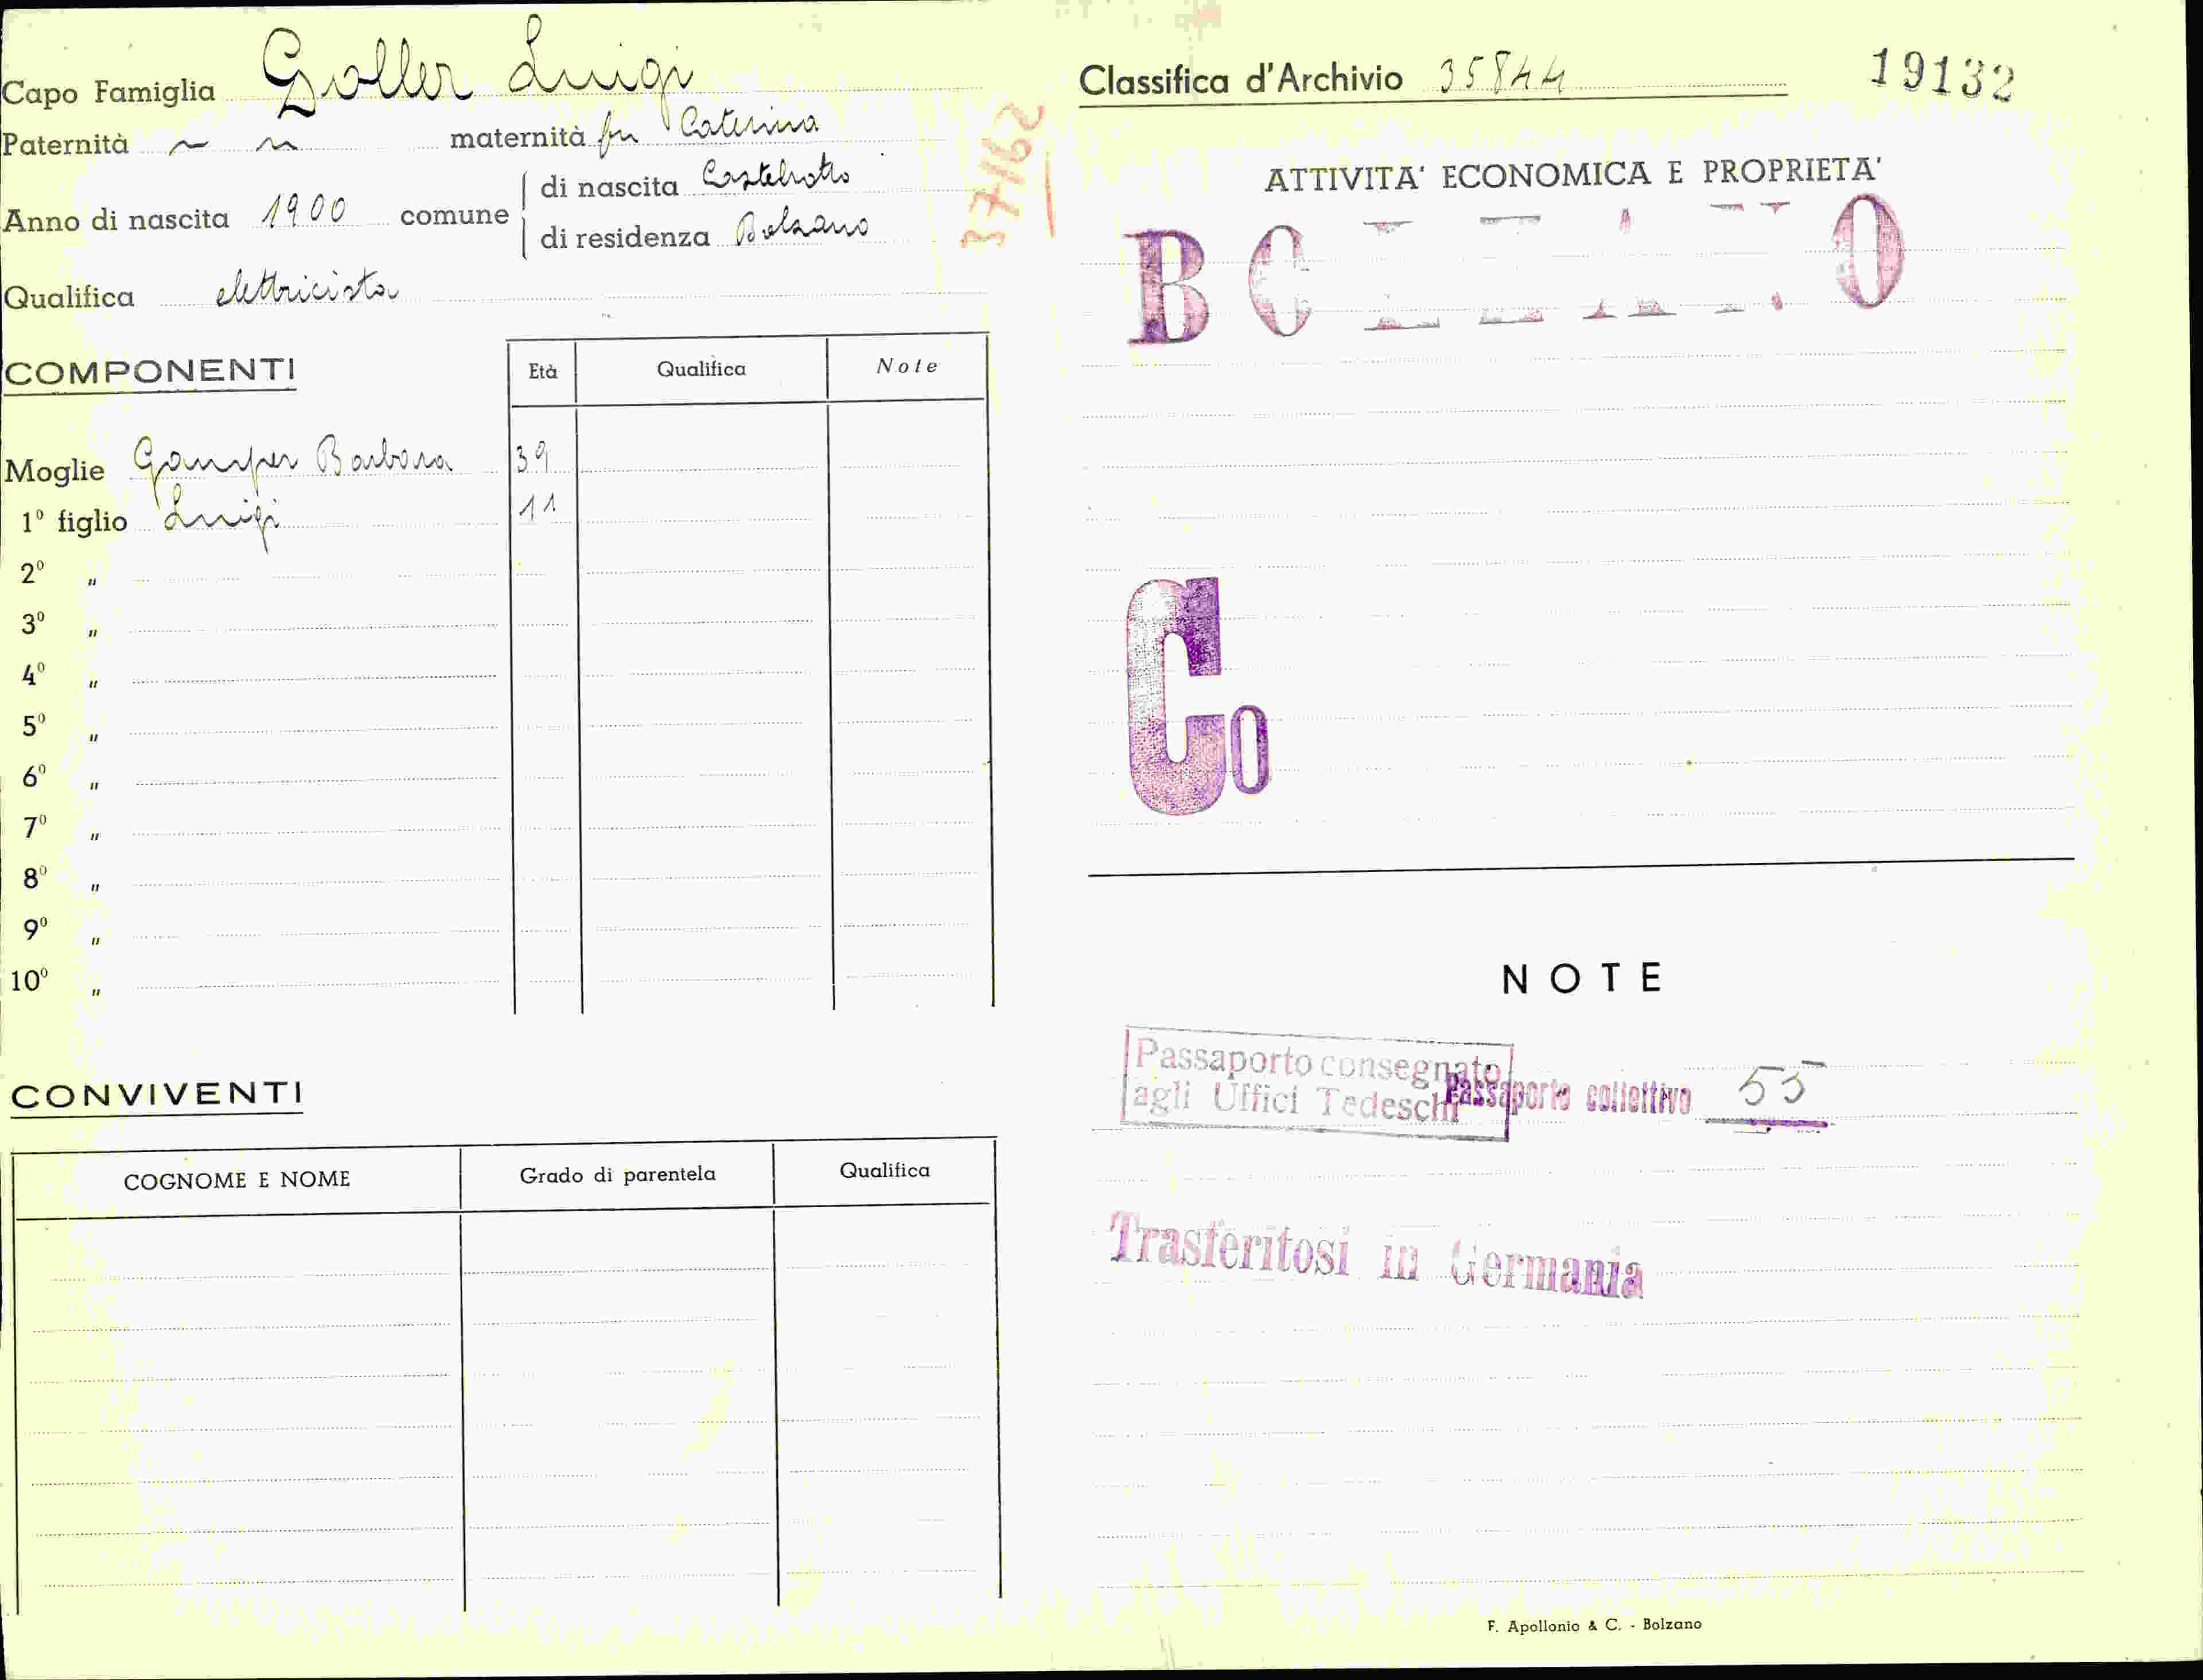 Capo Famiglia Goller Luigi
Paternità ~ ~ maternità fu Caterina
Anno di nascita 1900 comune di nascita Castelrotto
di residenza Bolzano
Qualifica elettricista
COMPONENTI Età Qualifica Note
Moglie Gamper Barbara 39
1º figlio Luigi 11
2º "
3º "
4º "
5º "
6º "
7º "
8º "
9º "
10º "
CONVIVENTI
COGNOME E NOME Grado di parentela Qualifica
Classifica d'Archivio 35844 19132
ATTIVITA' ECONOMICA E PROPRIETA'
Co
NOTE
Passaporto consegnato
agli Uffici Tedeschi
Passaporto collettivo 55
Trasferitosi in Germania
F. Apollonio & C. - Bolzano